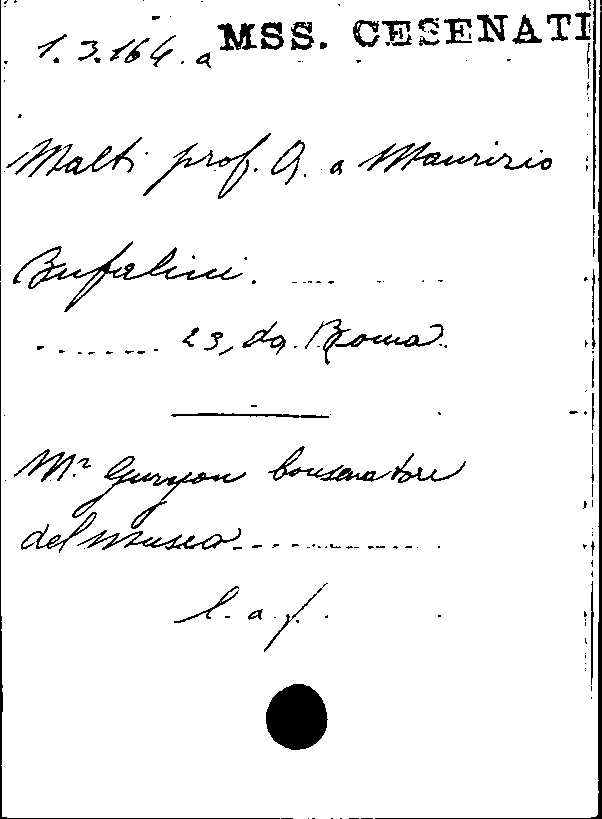 MSS. CESENATI
1.3.164.a
Malti prof. G. a Maurizio
Bufalini. .... ..
....... 23, da Roma
Mr Guryon Conservatore
del Museo..............
l. a. f.